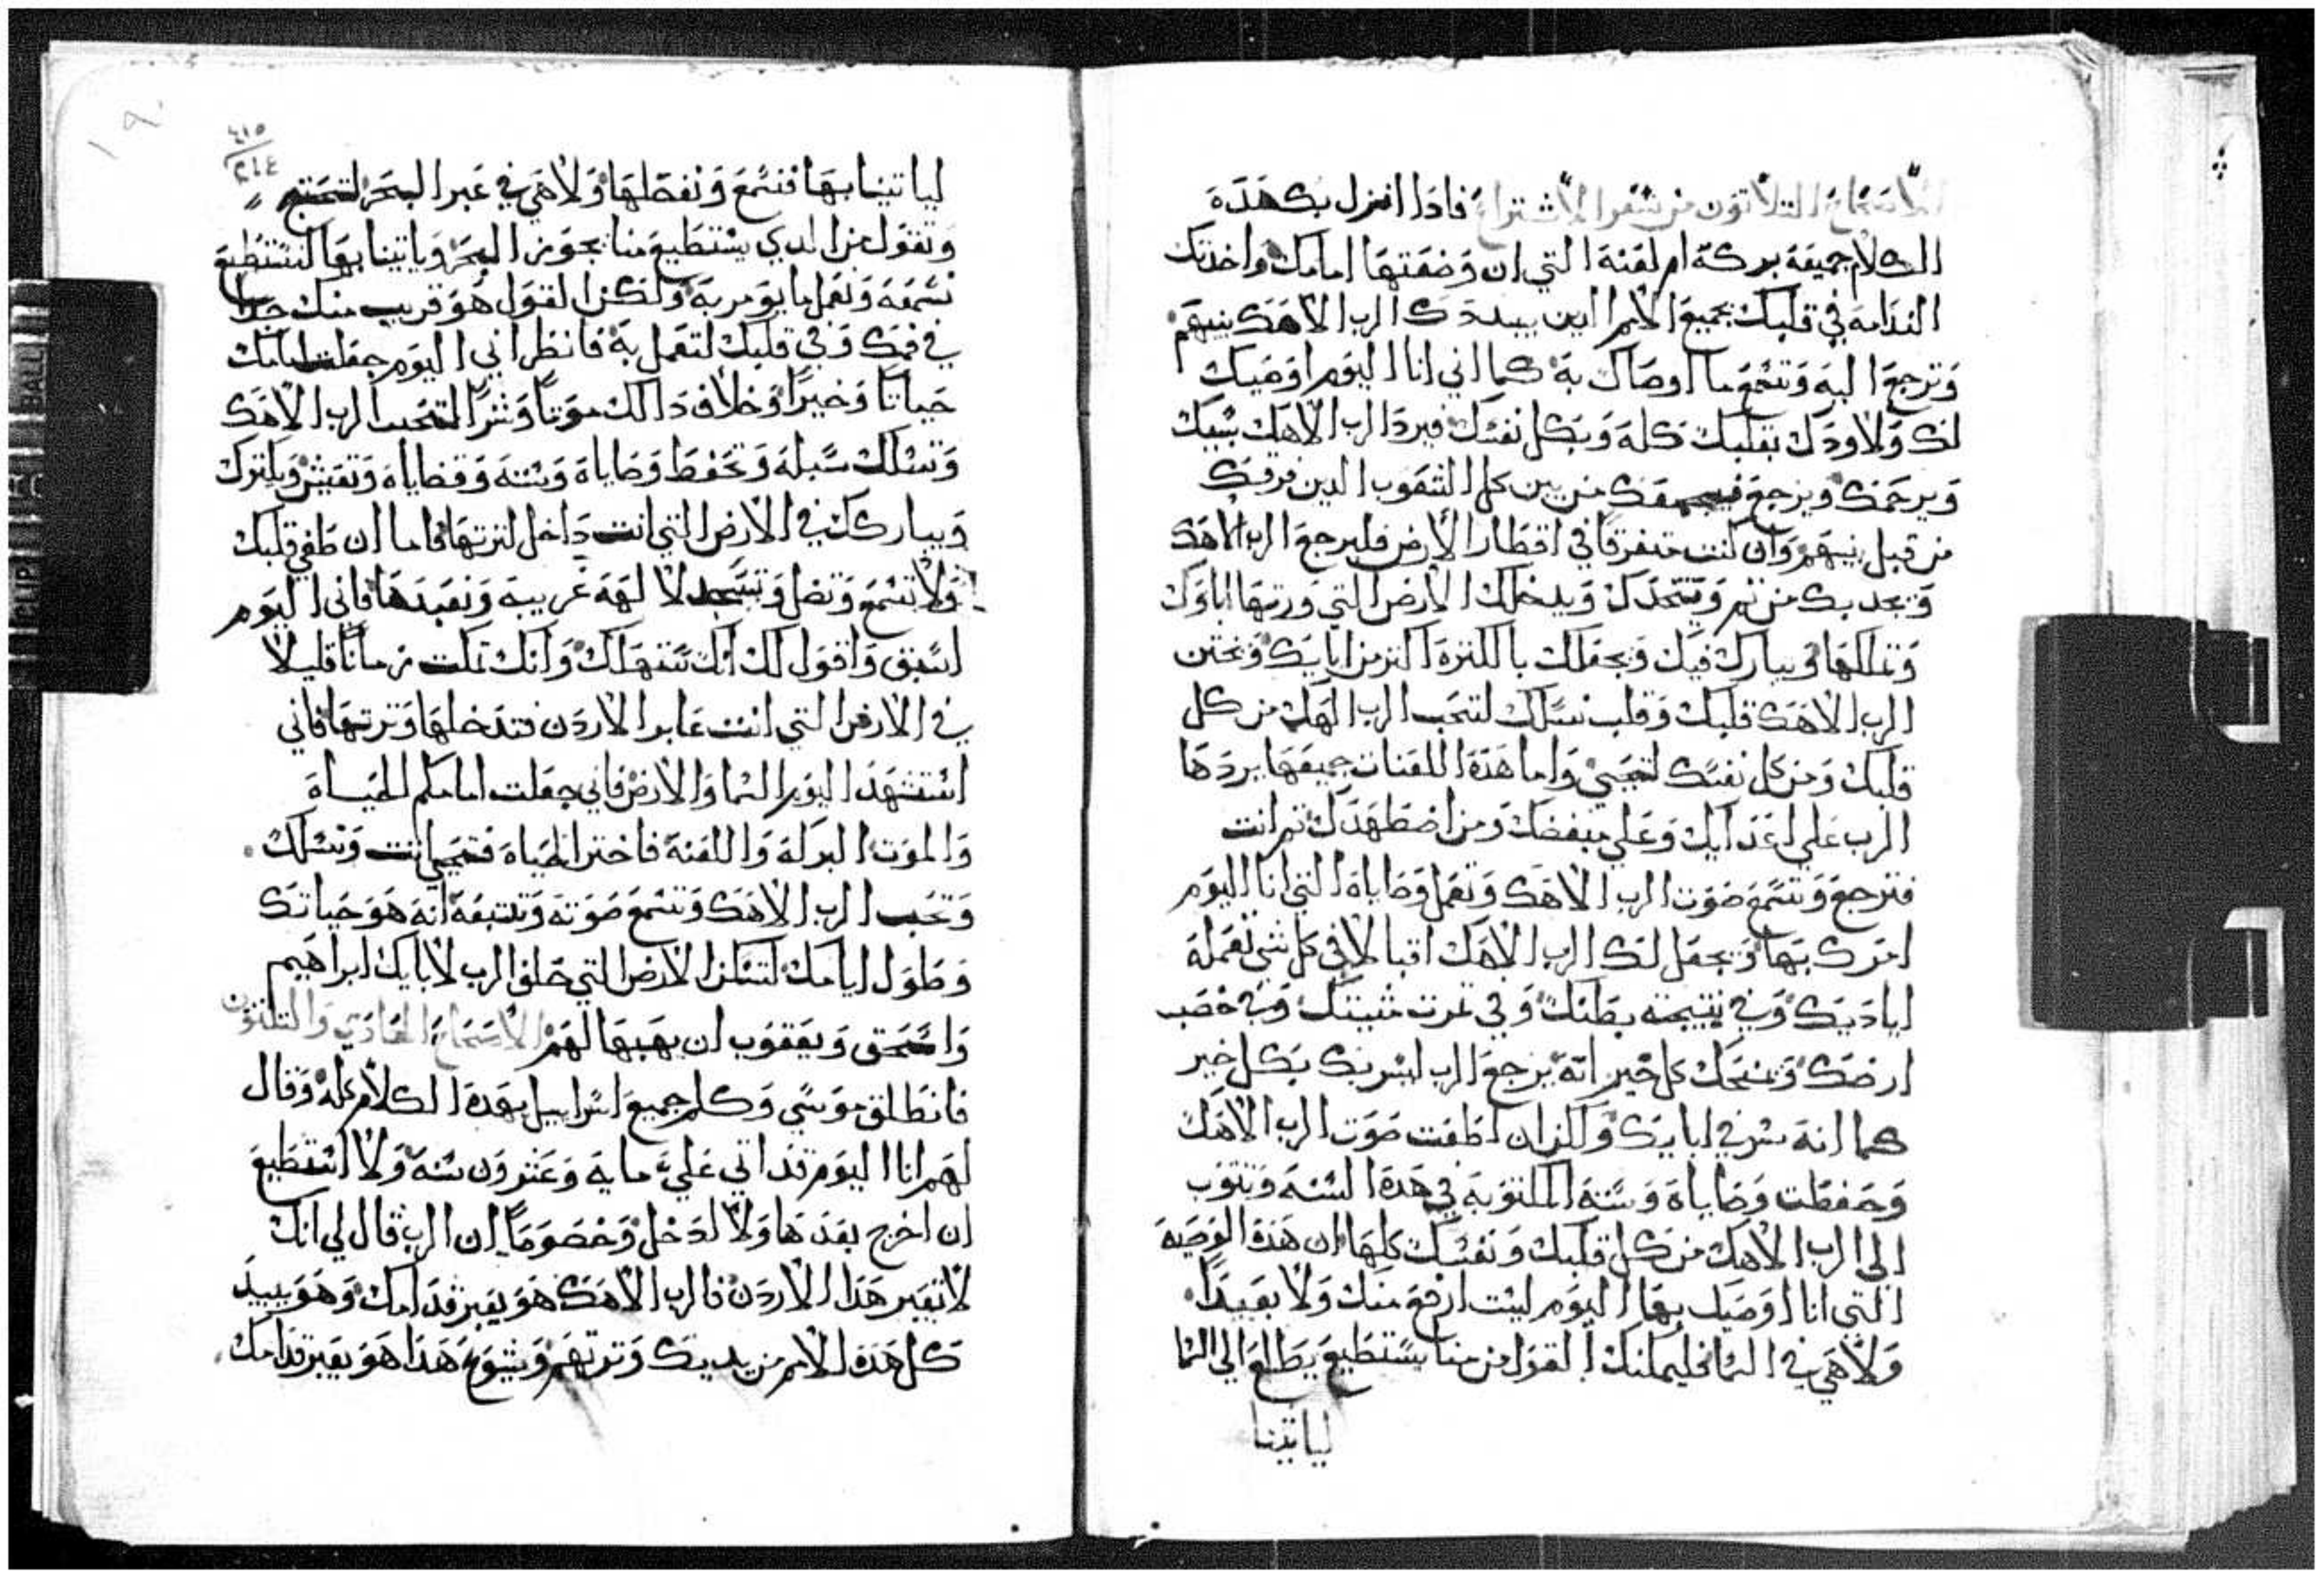 الاصحاح التلاتون من سفر الاشتراع فادا انزل بك هده
الكلام جميعه بركة ام لعنة التي ان وضعتها امامك واخدتك
الندامه في قلبك بجميع الامم الدين يبددك الرب الاهك بينهم
وترجع اليه وتسمع ما اوصاك به كما اني انا اليوم اوصيك
لك ولاودك بقلبك كله وبكل نفسك فيرد الرب الاهك سبيك
ويرحمك ويرجع فيجمعك من بين كل الشعوب الدين فرقك
من قبل بينهم وان كنت متفرقا في اقطار الارض فليرجع الرب الاهك
ويجدبك من تم ويتخدك ويدخلك الارض التي ورتها اباوك
وتملكها ويبارك فيك ويجعلك بالكترة اكتر من ابايك ويختن
الرب الاهك قلبك وقلب نسلك لتحب الرب الهك من كل
قلبك ومن كل نفسك لتحيي واما هده اللعنات جميعها يردها
الرب علي اعدايك وعلي مبغضك ومن اضطهدك تم انت
فترجع وتسمع صوت الرب الاهك وتعمل وصاياه التي انا اليوم
امرك بها ويجعل لك الرب الاهك اقبالا في كل شي تعمله
اياديك وفي نتيجته بطنك وفي تمرت مثيتك وفي خصب
ارضك ويمنحك كل خير انه يرجع الرب ليسر بك بكل خير
كما انه سر في ابايك ولكن ان اطعت صوت الرب الاهك
وحفظت وصاياه وسنته المكتوبه في هده السنه وتتوب
الى الرب الاهك من كل قلبك ونفسك كلها ان هده الوصيه
التي انا اوصيك بها اليوم ليست ارفع منك ولا بعيدا
ولا هي في السما فليمكنك القول من منا يستطيع يطلع الي السما
لياتينا
٤١٥
٢١٤
١٩٠
لياتينا بها فنسمع ونفعلها ولا هي في عبر البحر لتحتج
وتقول من الدي يستطيع منا يجوز البحر وياتينا بها لنستطيع
نسمعه ونعمل ما يومر به ولكن القول هو قريب منك جدا
في فمك وفي قلبك لتعمل به فانظر اني اليوم جعلت امامك
حياتا وخيرا وخلاف دالك موتا وشرا لتحب الرب الاهك
وتسلك سبله وتحفظ وصاياه وسنته وقضاياه وتعيش ويكترك
ويباركك في الارض التي انت داخل لترتها فاما ان طغي قلبك
ولا تسمع وتضل وتسجد لالهة غريبة وتعبدها فاني اليوم
اسبق واقول لك انك ستهلك وانك تمكت زمانا قليلا
في الارض التي انت عابر الاردن فتدخلها وترتها فاني
استشهد اليوم السما والارض فاني جعلت امامكم الحياة
والموت البركة واللعنة فاختر الحياة فتحيي انت ونسلك
وتحب الرب الاهك وتسمع صوته وتلتبعه انه هو حياتك
وطول ايامك لتسكن الارض التي حلف الرب لابايك ابراهيم
واسحق ويعقوب ان يهبها لهم الاصحاح الحادي والتلتون
فانطلق موسي وكلم جميع اسراييل بهده الكلام كله وقال
لهم انا اليوم قد اتي علي مايه وعشرون سنه ولا استطيع
ان اخرج بعدها ولا ادخل وخصوصا ان الرب قال لي انك
لا تعبر هدا الاردن فالرب الاهك هو يعبر قدامك وهو يبيد
كل هده الامم من يديك وترتهم ويشوع هدا هو يعبر قدامك